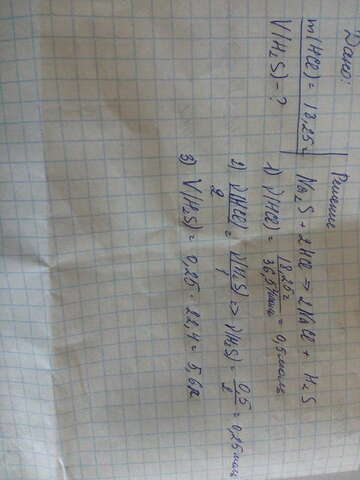 Дано:
m(HCl) = 18,25г
V(H₂S) - ?
Решение
Na₂S + 2HCl → 2NaCl + H₂S
1) ν(HCl) = 18,25г / 36,5г/моль = 0,5моль
2) ν(HCl) / 2 = ν(H₂S) / 1 => ν(H₂S) = 0,5 / 2 = 0,25моль
3) V(H₂S) = 0,25 · 22,4 = 5,6л